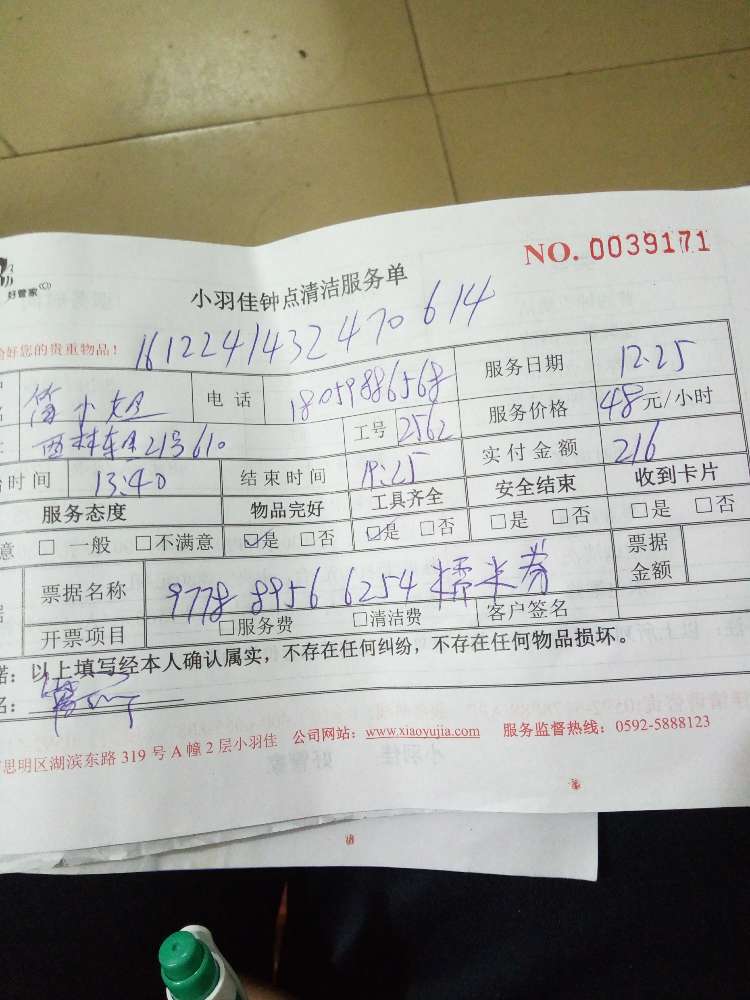 NO. 0039171
好管家
小羽佳钟点清洁服务单
好您的贵重物品！
1612241432470614
小姐 电话 18059886568 服务日期 12.25
西林东里21号610 工号 2562 服务价格 48元/小时
时间 13:40 结束时间 :25 实付金额 216
服务态度 物品完好 工具齐全 安全结束 收到卡片
意 □ 一般 □不满意 ☑是 □否 ☑是 □否 □是 □否 □是 □否
票据名称 9778 8956 6254 糯米券 票据金额
开票项目 □服务费 □清洁费 客户签名
诺：以上填写经本人确认属实，不存在任何纠纷，不存在任何物品损坏。
名：
思明区湖滨东路 319 号 A 幢 2 层小羽佳 公司网站：www.xiaoyujia.com 服务监督热线：0592-5888123